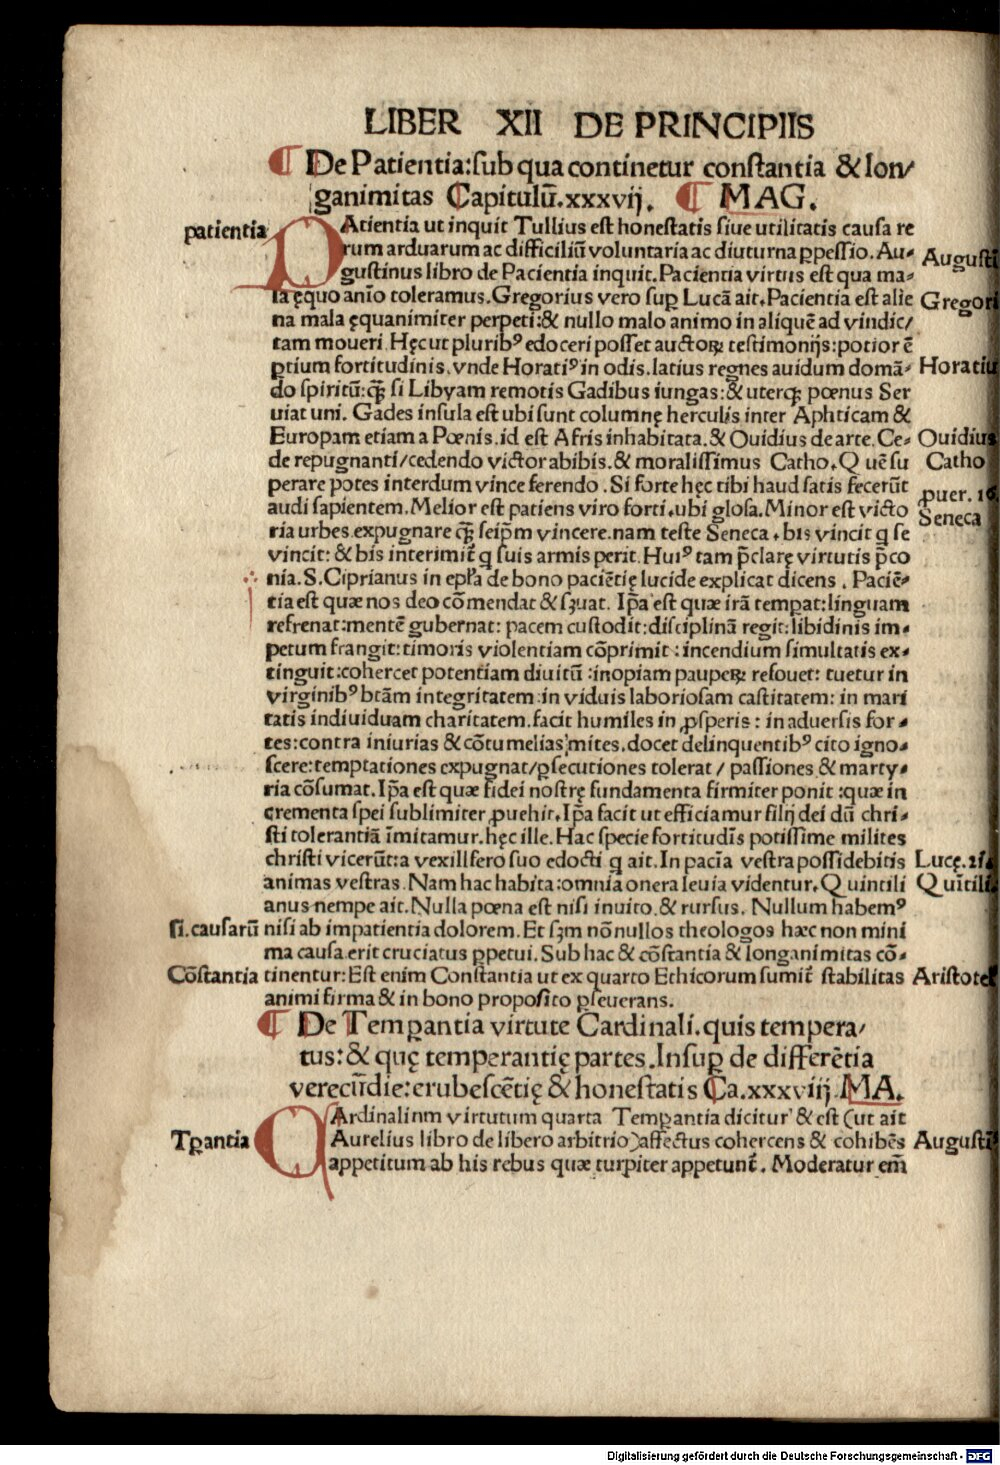 LIBER XII DE PRINCIPIIS
¶ De Patientia:ſub qua continetur conſtantia & lon/
ganimitas Capitulū.xxxvij. ¶ MAG.
patientia
PAtientia ut inquit Tullius eſt honeſtatis ſiue utilitatis cauſa re
rum arduarum ac difficiliū voluntaria ac diuturna ꝑpeſſio. Au-
Auguſti
guſtinus libro de Pacientia inquit. Pacientia virtus eſt qua ma-
la ęquo anīo toleramus. Gregorius vero ſuꝑ Lucā ait. Pacientia eſt alie
Gregori
na mala ęquanimiter perpeti:& nullo malo animo in aliquē ad vindic/
tam moueri. Hęc ut pluribꝰ edoceri poſſet auctoꝝ teſtimonijs:potior ē
ꝑtium fortitudinis. vnde Horatiꝰ in odis. latius regnes auidum domā-
Horatiu
do ſpiritū:ꝙ̄ ſi Libyam remotis Gadibus iungas:& uterqꝫ pœnus Ser
uiat uni. Gades inſula eſt ubi ſunt columnę herculis inter Aphricam &
Europam etiam a Pœnis. id eſt Afris inhabitata. & Ouidius de arte. Ce-
Ouidius
de repugnanti/cedendo victor abibis. & moraliſſimus Catho. Quē ſu
Catho
perare potes interdum vince ferendo. Si forte hęc tibi haud ſatis fecerūt
puer. 16
audi ſapientem. Melior eſt patiens viro forti. ubi gloſa. Minor eſt victo
Seneca
ria urbes expugnare ꝙ̄ ſeip̄m vincere. nam teſte Seneca. bis vincit q ſe
vincit: & bis interimit̄ q ſuis armis perit. Huiꝰ tam p̄clarę virtutis p̄co
nia. S. Ciprianus in epl̄a de bono paciētię lucide explicat dicens. Paciē-
tia eſt quæ nos deo cōmendat & ſꝫuat. Ip̄a eſt quæ irā temꝑat:linguam
refrenat:mentē gubernat: pacem cuſtodit:diſciplinā regit:libidinis im-
petum frangit:timoris violentiam cōprimit:incendium ſimultatis ex-
tinguit:cohercet potentiam diuitū:inopiam pauꝑeꝝ refouet: tuetur in
virginibꝰ btām integritatem:in viduis laborioſam caſtitatem: in mari
tatis indiuiduam charitatem. facit humiles in ꝓſperis: in aduerſis for-
tes:contra iniurias & cōtumelias mites. docet delinquentibꝰ cito igno-
ſcere:temptationes expugnat/ꝑſecutiones tolerat/ paſſiones & marty-
ria cōſumat. Ip̄a eſt quæ fidei noſtrę fundamenta firmiter ponit:quæ in
crementa ſpei ſublimiter ꝓuehit. Ip̄a facit ut efficiamur filij dei dū chri-
ſti tolerantiā īmitamur. hęc ille. Hac ſpecie fortitudīs potiſſime milites
chriſti vicerūt:a vexillifero ſuo edocti q ait. In pacīa veſtra poſſidebitis
Lucę. 21
animas veſtras. Nam hac habita:omnia onera leuia videntur. Quintili
Quītili
anus nempe ait. Nulla pœna eſt niſi inuito. & rurſus. Nullum habemꝰ
ſi. cauſarū
niſi ab impatientia dolorem. Et ſꝫm nōnullos theologos hæc non mini
ma cauſa erit cruciatus ꝑpetui. Sub hac & cōſtantia & longanimitas cō-
Cōſtantia
tinentur: Eſt enim Conſtantia ut ex quarto Ethicorum ſumit̄ ſtabilitas
Ariſtotel
animi firma & in bono propoſito ꝑſeuerans.
¶ De Temꝑantia virtute Cardinali. quis tempera/
tus: & quę temperantię partes. Inſuꝑ de differētia
verecūdie: erubeſcētię & honeſtatis Ca. xxxviij. MA.
CArdinalinm virtutum quarta Temꝑantia dicitur & eſt (ut ait
Tꝑantia
Aurelius libro de libero arbitrio) affectus cohercens & cohibēs
Auguſti
appetitum ab his rebus quæ turpiter appetunt̄. Moderatur em̄
Digitalisierung gefördert durch die Deutsche Forschungsgemeinschaft - DFG